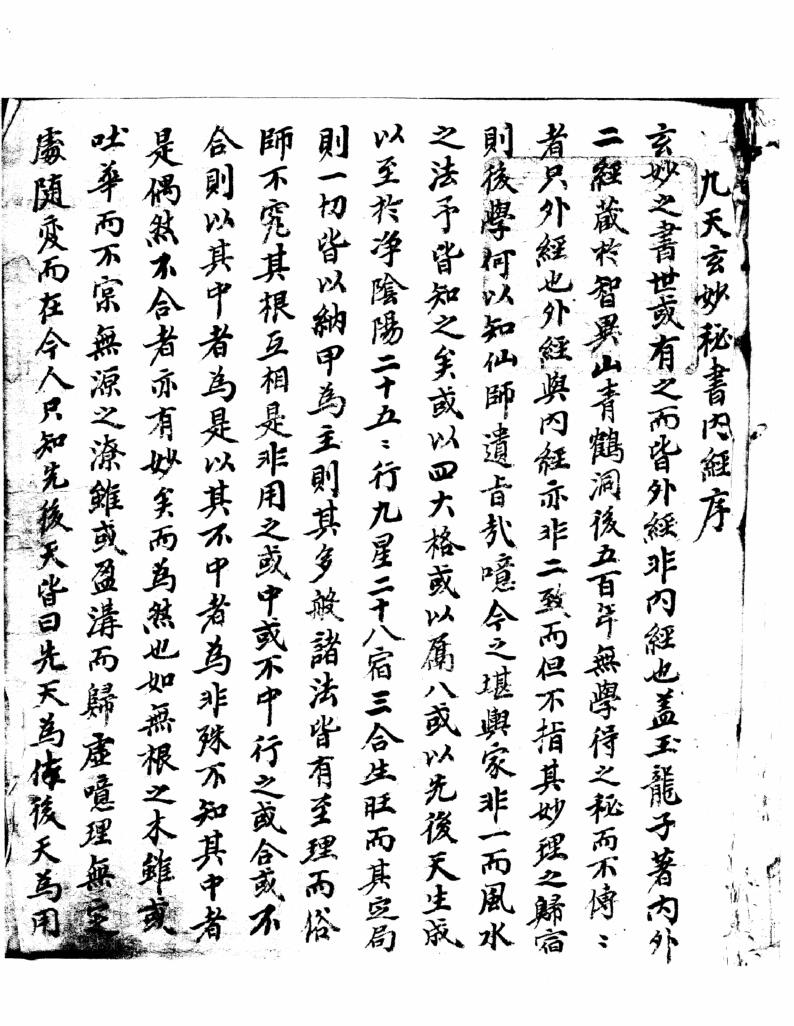 九天玄妙秘書內經序
玄妙之書世或有之而皆外經非內經也盖玉龍子著內外
二經蔵於智異山青鶴洞後五百年無學得之秘而不傳〻
者只外經也外經與內經亦非二致而但不指其妙理之歸宿
則後學何以知仙師遺旨㢤噫今之堪輿家非一而風水
之法予皆知之矣或以四大格或以屬八或以先後天生成
以至於净陰陽二十五〻行九星二十八宿三合生旺而其定局
則一切皆以納甲為主則其多般諸法皆有至理而俗
師不究其根互相是非用之或中或不中行之或合或不
合則以其中者為是以其不中者為非殊不知其中者
是偶然不合者亦有妙矣而為然也如無根之木雖或
吐華而不實無源之潦雖或盈溝而歸虛噫理無定
處随変而在今人只知先後天皆曰先天為体後天為用